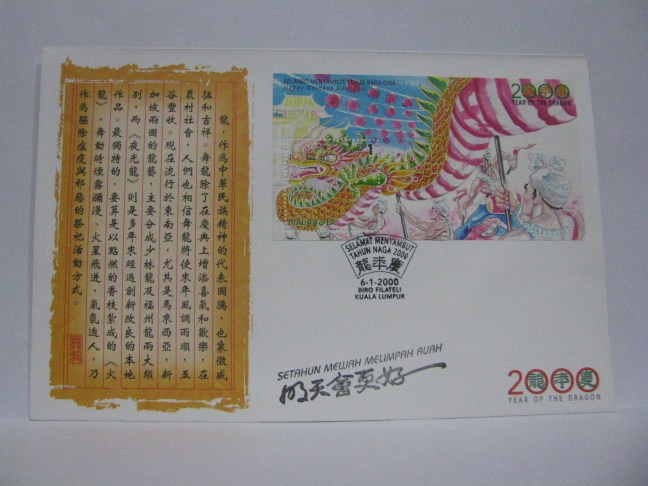 龍，作為中華民族精神的代表圖騰，也象徵威
猛和吉祥。舞龍除了在慶典上增添喜氣和歡樂，在
農村社會，人們也相信舞龍將使來年風調雨順，五
谷豐收。現在流行於東南亞，尤其是馬來西亞，新
加坡兩國的龍藝，主要分成少林龍及福州龍兩大類
別，而《夜光龍》則是多年來經過創新改良的本地
作品。最獨特的，要算是以點燃的香枝紮成的《火
龍》，舞動時煙霧瀰漫，火星飛迸，氣氛迫人，乃
作為驅除瘟疫與邪惡的祭祀活動方式。
SELAMAT MENYAMBUT TAHUN BARU CINA
Happy Chinese New Year
2000
YEAR OF THE DRAGON
1
MALAYSIA
SELAMAT MENYAMBUT
TAHUN NAGA 2000
龍年慶
6-1-2000
BIRO FILATELI
KUALA LUMPUR
SETAHUN MEWAH MELIMPAH RUAH
明天會更好
2000 龍年慶
YEAR OF THE DRAGON